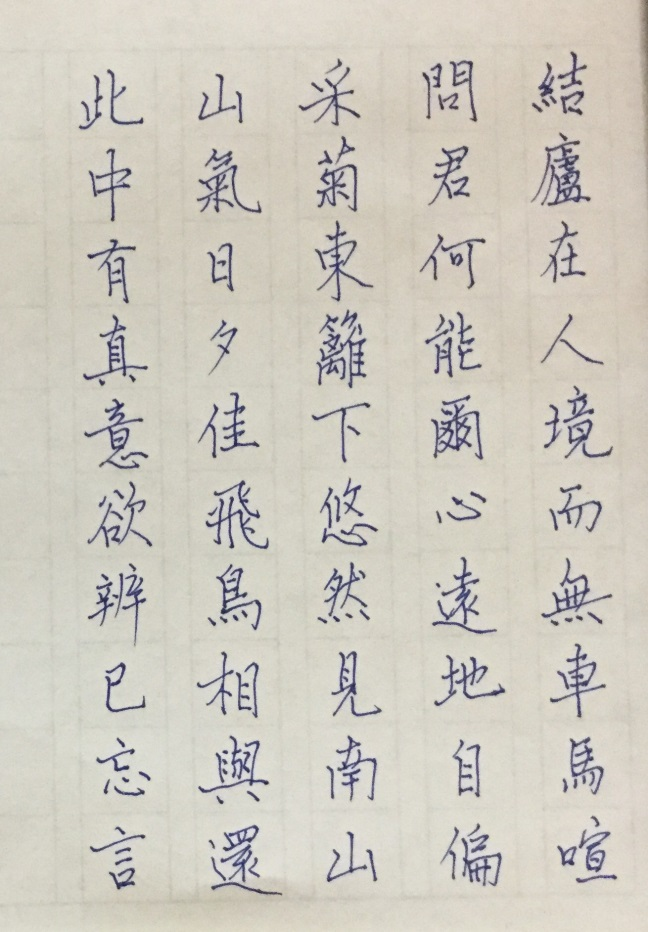 結廬在人境而無車馬喧
問君何能爾心遠地自偏
采菊東籬下悠然見南山
山氣日夕佳飛鳥相與還
此中有真意欲辨已忘言